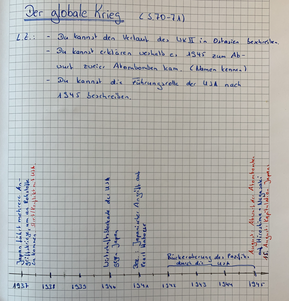 Der globale Krieg (S.70-71)
L.Z.: - Du kannst den Verlauf des WK II in Ostasien beschreiben.
- Du kannst erklären weshalb es 1945 zum Ab-
wurf zweier Atombomben kam. (Namen kennen)
- Du kannst die Führungsrolle der USA nach
1945 beschreiben.
Japan führt mehrere An-
griffskriege, um an Rohstoffe
zu kommen
Wirtschaftsblockade der USA
gegn. Japan
Dez. Japanischer Angriff auf
Pearl Harbour
Rückeroberung des Pazifiks
durch die USA
August: Abwurf der Atombombe
auf Hiroshima + Nagasaki
August: Kapitulation Japans
1937 1938 1939 1940 1941 1942 1943 1944 1945